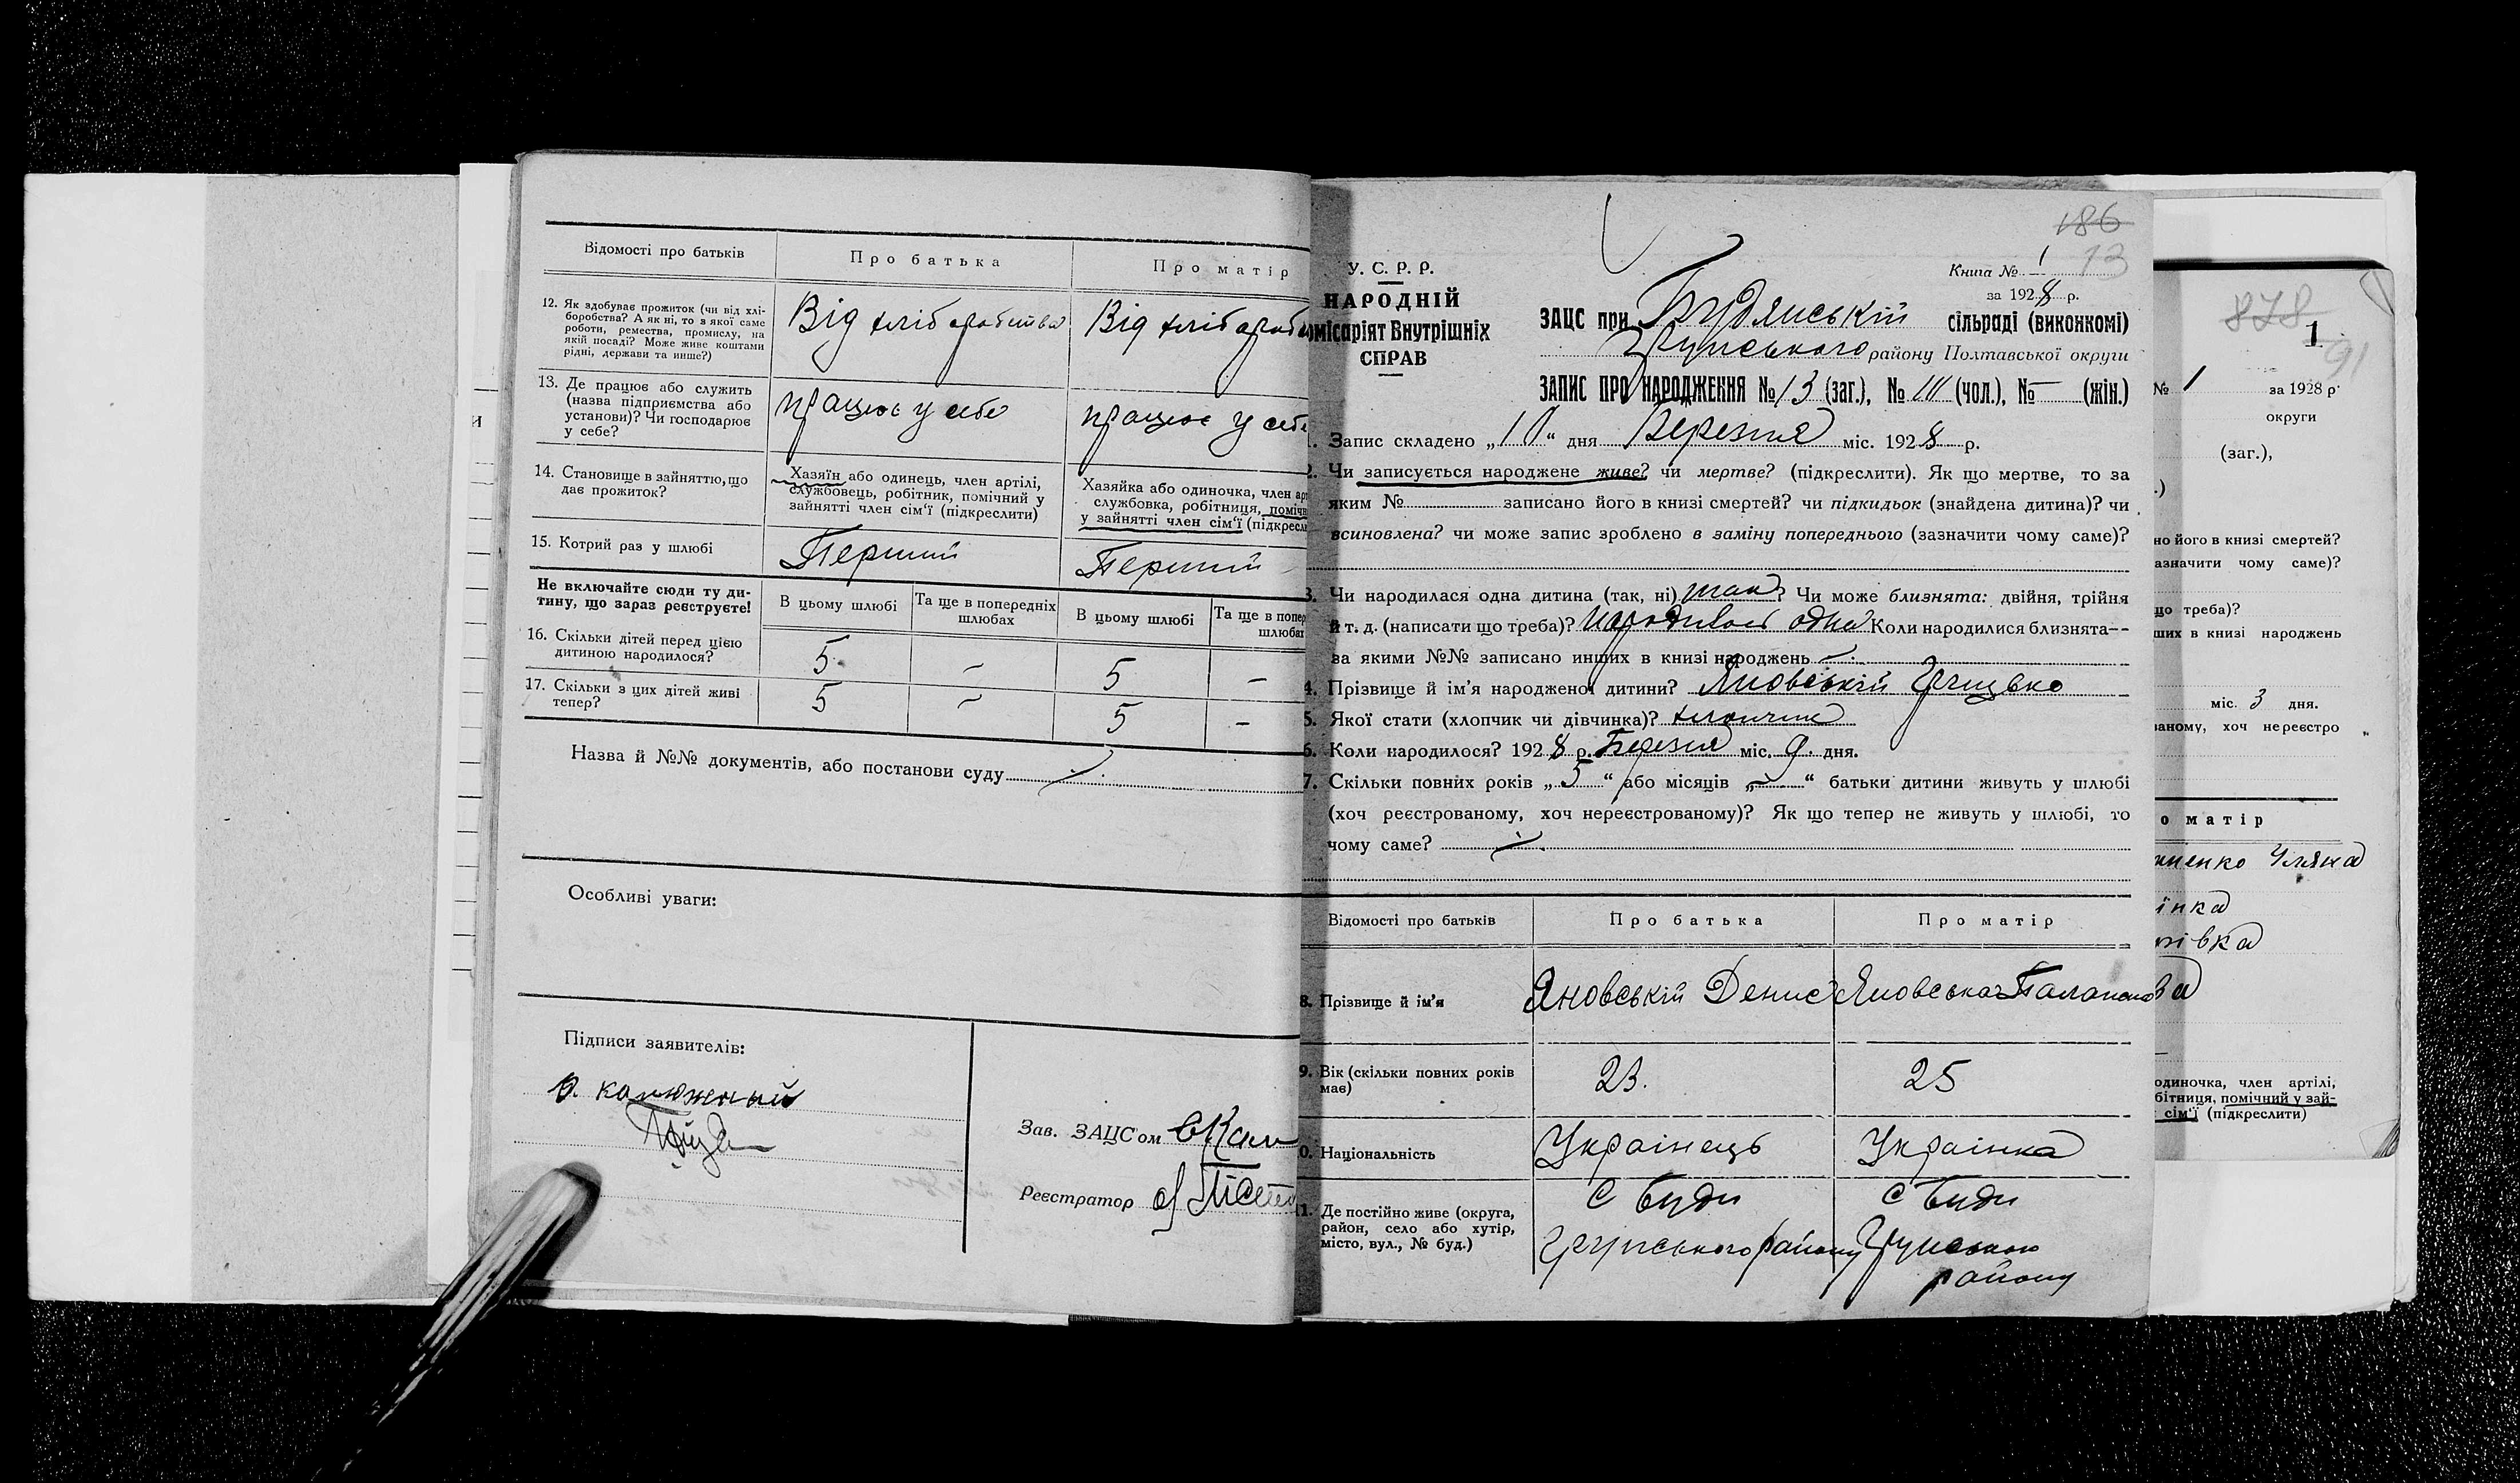 Відомості про батьків
Про батька
Про матір
12. Як здобуває прожиток (чи від хлі-
боробства? А як ні, то з якої саме
роботи, ремества, промислу, на
якій посаді? Може живе коштами
рідні, держави та инше?)
Від хліборобства
Від хлібороб
13. Де працює або служить
(назва підприємства або
установи)? Чи господарює
у себе?
працює у себе
працює у себе
14. Становище в зайняттю, що
дає прожиток?
Хазяїн або одинець, член артілі,
службовець, робітник, помічний у
зайнятті член сім'ї (підкреслити)
Хазяйка або одиночка, член арт
службовка, робітниця, помічн
у зайнятті член сім'ї (підкресл
15. Котрий раз у шлюбі
Перший
Перший
Не включайте сюди ту ди-
тину, що зараз реєструєте!
В цьому шлюбі
Та ще в попередніх
шлюбах
В цьому шлюбі
Та ще в попер
шлюбах
16. Скільки дітей перед цією
дитиною народилося?
5 - 5 -
17. Скільки з цих дітей живі
тепер?
5 - 5 -
Назва й №№ документів, або постанови суду
Особливі уваги:
Підписи заявителів:
калюжный
Зав. ЗАЦС'ом
Реєстратор
186
13
У. С. Р. Р.
НАРОДНІЙ
місаріят Внутрішніх
СПРАВ
Книга № 1
за 1928 р.
ЗАЦС при Будянській сільраді (виконкомі)
Грунського району Полтавської округи
ЗАПИС ПРО НАРОДЖЕННЯ № 13 (заг.), № 10 (чол.), № — (жін.)
1. Запис складено „10“ дня Березня міс. 1928 р.
2. Чи записується народжене живе? чи мертве? (підкреслити). Як що мертве, то за
яким № записано його в книзі смертей? чи підкидьок (знайдена дитина)? чи
всиновлена? чи може запис зроблено в заміну попереднього (зазначити чому саме)?
3. Чи народилася одна дитина (так, ні) так? Чи може близнята: двійня, трійня
й т. д. (написати що треба)? народилась одна Коли народилися близнята--
за якими №№ записано инших в книзі народжень -
4. Прізвище й ім'я народженої дитини? Яновській Грицько
5. Якої стати (хлопчик чи дівчинка)? хлопчик
6. Коли народилося? 1928 р. Березня міс. 9 дня.
7. Скільки повних років „5“ або місяців „-“ батьки дитини живуть у шлюбі
(хоч реєстрованому, хоч нереєстрованому)? Як що тепер не живуть у шлюбі, то
чому саме?
Відомості про батьків
Про батька
Про матір
8. Прізвище й ім'я
Яновській Денис
Яновська
9. Вік (скільки повних років
має)
23.
25
0. Національність
Українець
Українка
11. Де постійно живе (округа,
район, село або хутір,
місто, вул., № буд.)
с Буди
Грунського району
с Буди
Грунського
району
878
1
91
№ 1 за 1928 р.
округи
(заг.),
но його в книзі смертей?
азначити чому саме)?
що треба)?
инших в книзі народжень
міс. 3 дня.
ваному, хоч нереєстро
о матір
енко Уляна
їнка
івка
одиночка, член артілі,
бітниця, помічний у зай-
сім'ї (підкреслити)